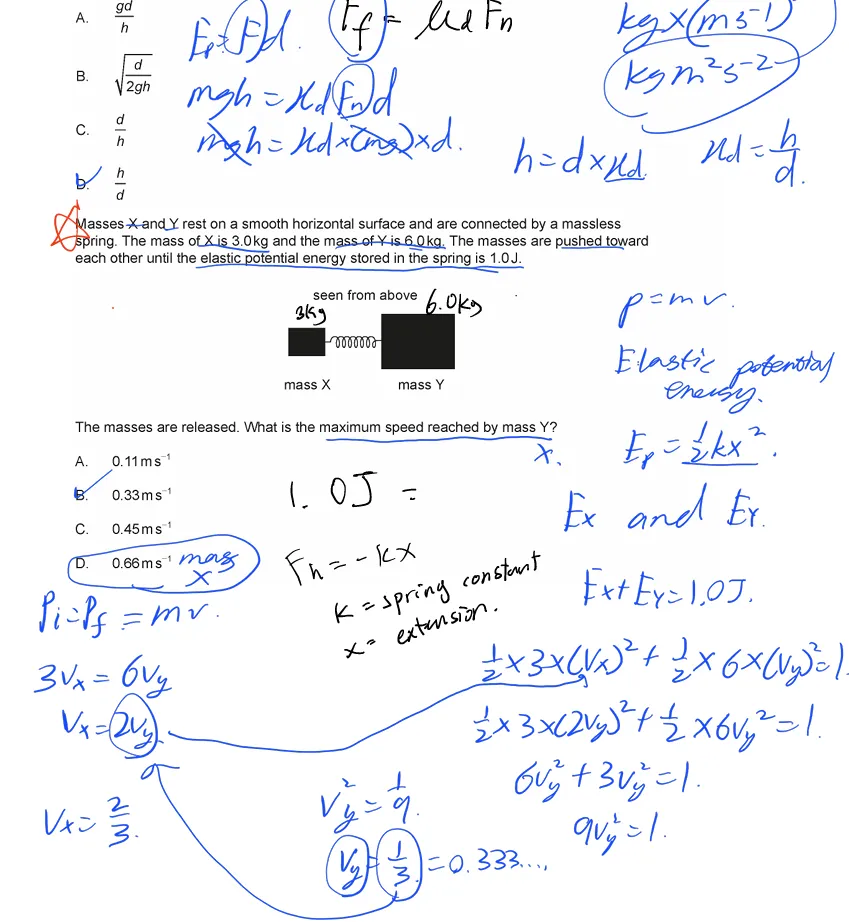 A. gd/h
Ep = Fd.
Ff = μd Fn
kg×(m s⁻¹)
B. √(d/2gh)
kg m²s⁻²
mgh = μd Fn d
C. d/h
mgh = μd×(mg)×d.
h = d×μd.
μd = h/d.
D. h/d
Masses X and Y rest on a smooth horizontal surface and are connected by a massless
spring. The mass of X is 3.0 kg and the mass of Y is 6.0 kg. The masses are pushed toward
each other until the elastic potential energy stored in the spring is 1.0 J.
seen from above
3kg
6.0kg
p = mv.
mass X
mass Y
Elastic potential
energy.
The masses are released. What is the maximum speed reached by mass Y?
X.
Ep = ½kx².
A. 0.11 m s⁻¹
B. 0.33 m s⁻¹
1.0J =
Ex and Ey.
C. 0.45 m s⁻¹
D. 0.66 m s⁻¹
mass
X
Fh = -kx
k = spring constant
x = extension.
Ex+Ey = 1.0J.
Pi = Pf = mv.
3Vx = 6Vy
½×3×(Vx)² + ½×6×(Vy)² = 1.
Vx = 2Vy.
½×3×(2Vy)² + ½×6Vy² = 1.
6Vy² + 3Vy² = 1.
Vx = 2/3.
Vy² = 1/9.
9Vy² = 1.
Vy = 1/3. = 0.333....